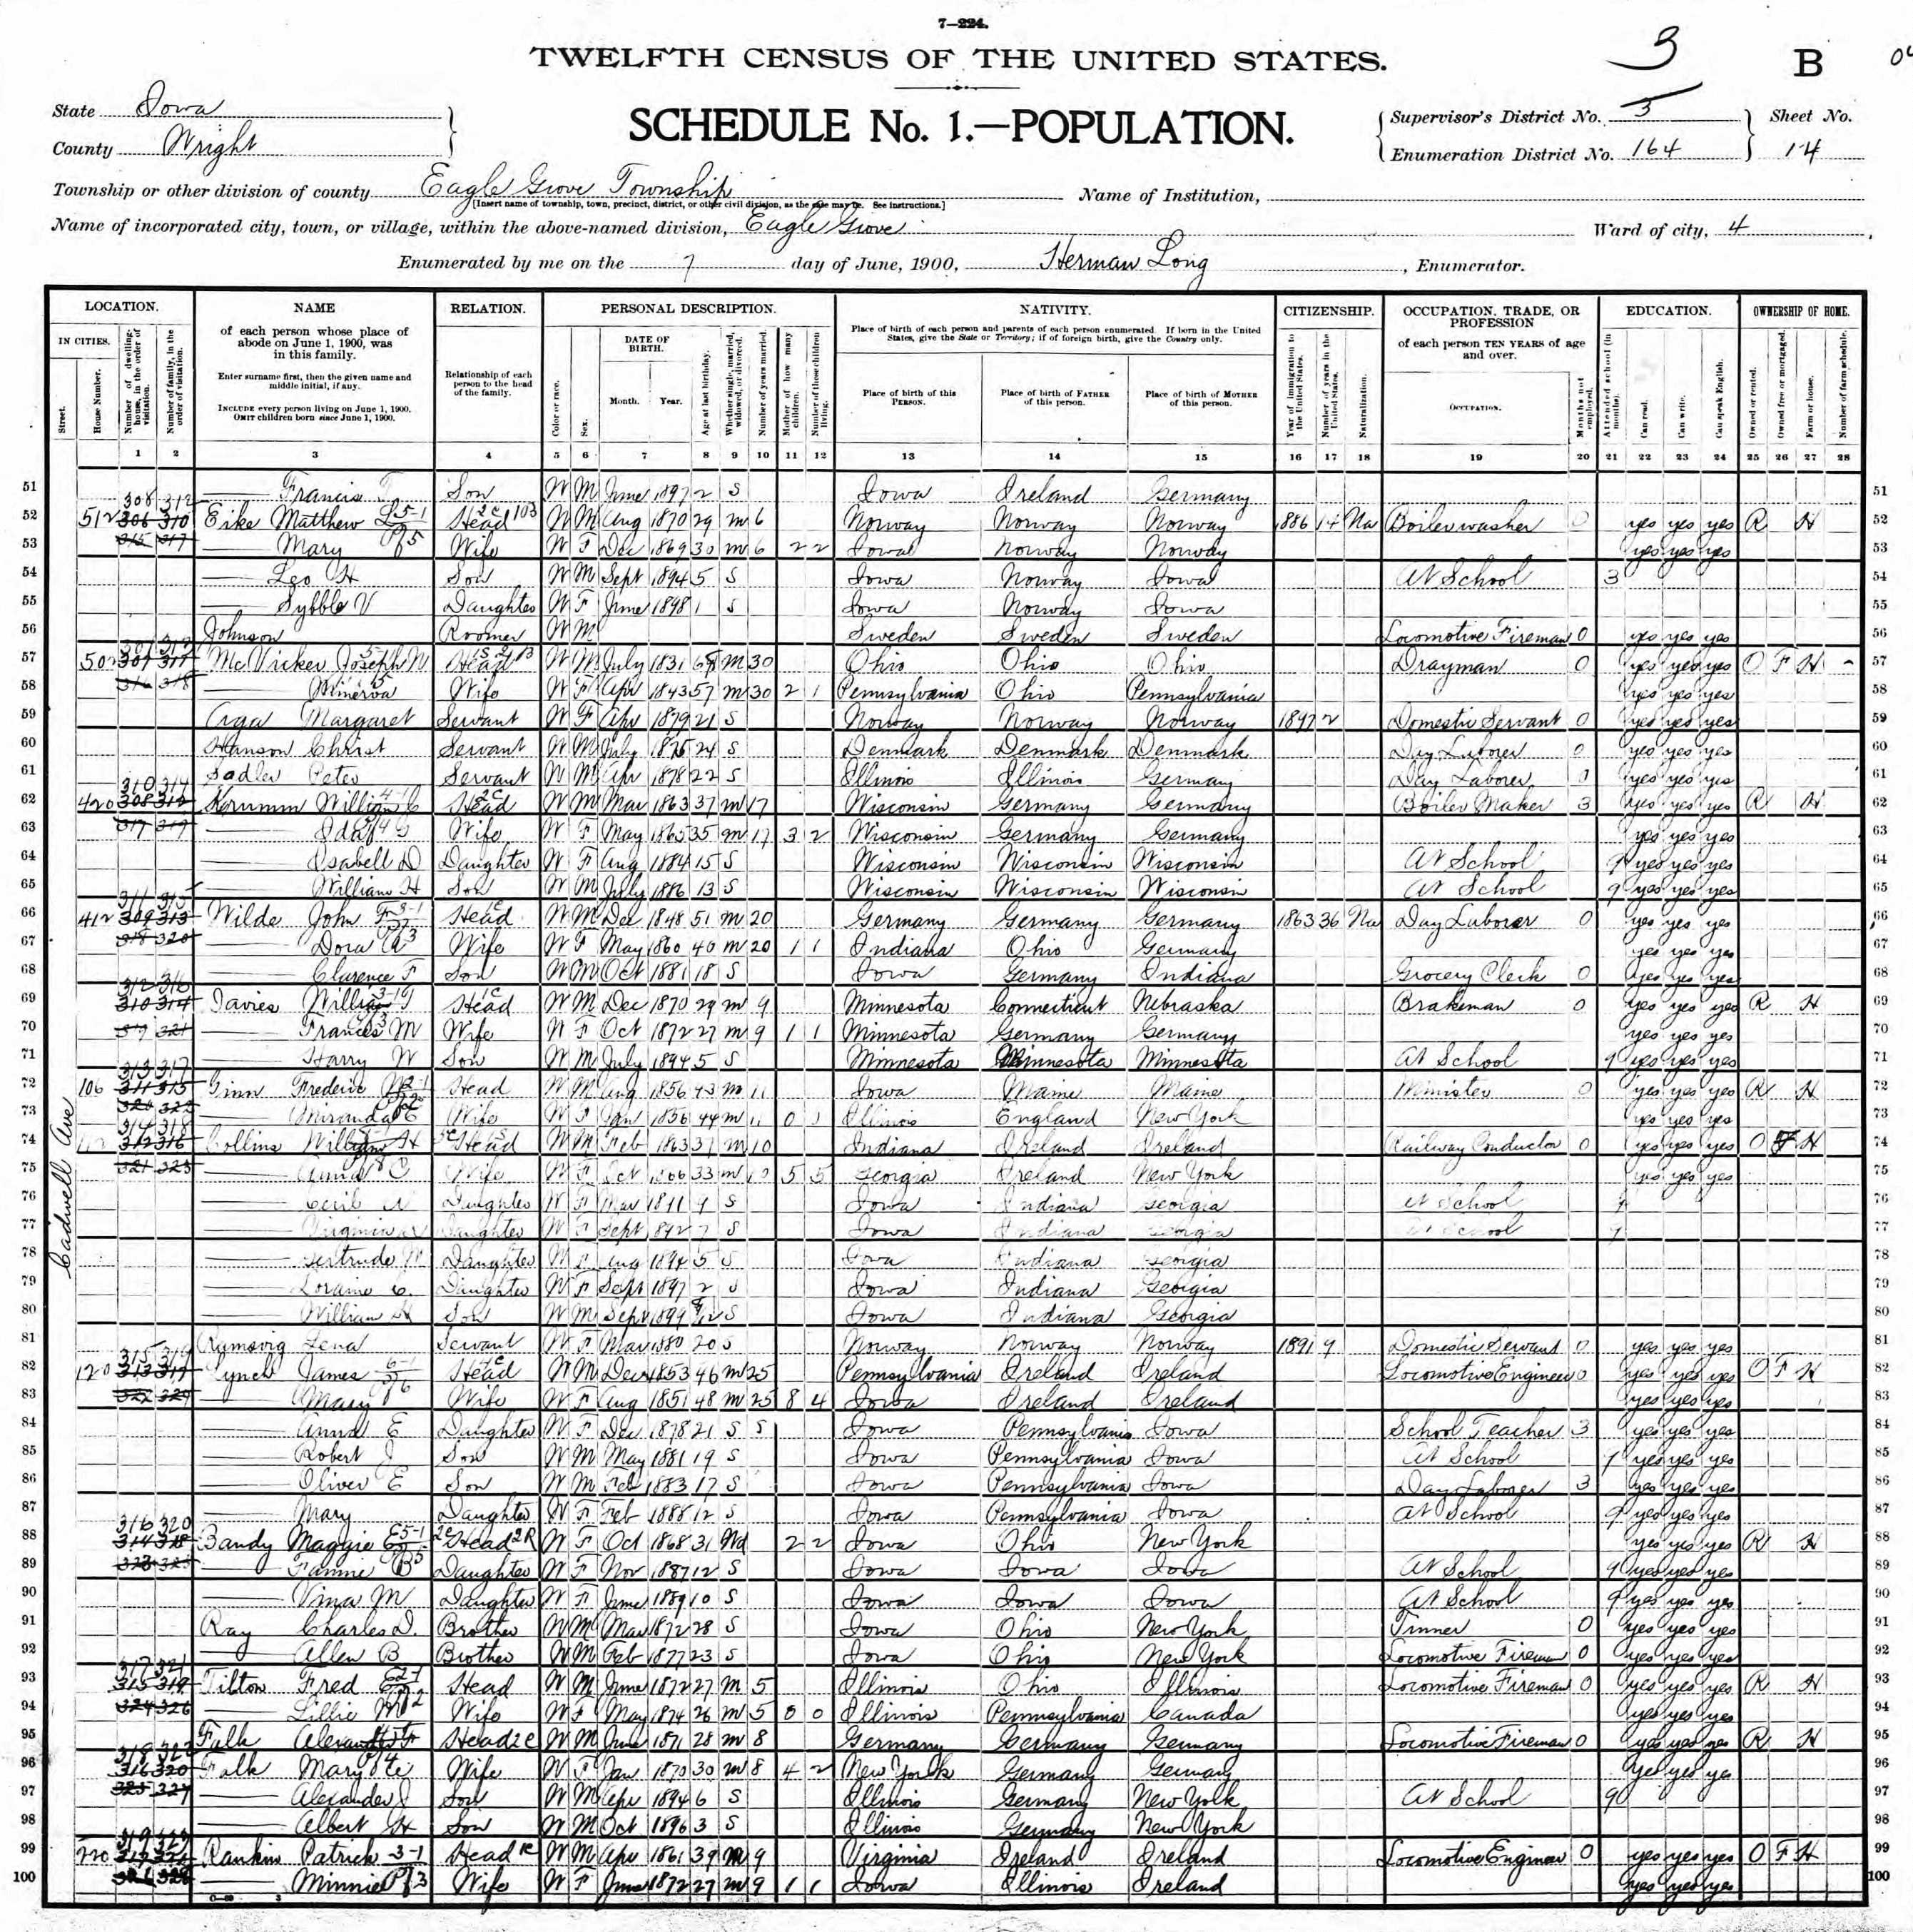 7—224.
TWELFTH CENSUS OF THE UNITED STATES.
3
B
State Iowa
County Wright
SCHEDULE No. 1.—POPULATION.
Supervisor's District No. 3
Enumeration District No. 164
Sheet No.
14
Township or other division of county Eagle Grove Township
[Insert name of township, town, precinct, district, or other civil division, as the case may be. See instructions.]
Name of Institution,
Name of incorporated city, town, or village, within the above-named division, Eagle Grove
Ward of city, 4
Enumerated by me on the 7 day of June, 1900, Herman Long, Enumerator.
LOCATION. NAME RELATION. PERSONAL DESCRIPTION. NATIVITY. CITIZENSHIP. OCCUPATION, TRADE, OR PROFESSION EDUCATION. OWNERSHIP OF HOME.
IN CITIES.
Street.
House Number.
Number of dwelling-house, in the order of visitation.
Number of family, in the order of visitation.
of each person whose place of abode on June 1, 1900, was in this family.
Enter surname first, then the given name and middle initial, if any.
INCLUDE every person living on June 1, 1900.
OMIT children born since June 1, 1900.
Relationship of each person to the head of the family.
Color or race.
Sex.
DATE OF BIRTH.
Month. Year.
Age at last birthday.
Whether single, married, widowed, or divorced.
Number of years married.
Mother of how many children.
Number of these children living.
Place of birth of each person and parents of each person enumerated. If born in the United States, give the State or Territory; if of foreign birth, give the Country only.
Place of birth of this PERSON.
Place of birth of FATHER of this person.
Place of birth of MOTHER of this person.
Year of immigration to the United States.
Number of years in the United States.
Naturalization.
of each person TEN YEARS of age and over.
OCCUPATION.
Months not employed.
Attended school (in months).
Can read.
Can write.
Can speak English.
Owned or rented.
Owned free or mortgaged.
Farm or house.
Number of farm schedule.
1 2 3 4 5 6 7 8 9 10 11 12 13 14 15 16 17 18 19 20 21 22 23 24 25 26 27 28
Cadwell Ave
51 — Francis Son W M June 1897 2 S Iowa Ireland Germany 51
52 512 308 312 Eike Matthew Head W M Aug 1870 29 m 6 Norway Norway Norway 1886 14 Na Boiler washer 0 yes yes yes R H 52
53 — Mary Wife W F Dec 1869 30 m 6 2 2 Iowa Norway Norway yes yes yes 53
54 — Leo H Son W M Sept 1894 5 S Iowa Norway Iowa At School 3 54
55 — Sybble V Daughter W F June 1898 1 S Iowa Norway Iowa 55
56 Johnson Roomer W M Sweden Sweden Sweden Locomotive Fireman 0 yes yes yes 56
57 McVicker Joseph Head W M July 1831 M 30 Ohio Ohio Ohio Drayman 0 yes yes yes O F H 57
58 — Minerva Wife W F Apr 1843 57 m 30 2 1 Pennsylvania Ohio Pennsylvania yes yes yes 58
59 Aga Margaret Servant W F Apr 1879 21 S Norway Norway Norway 1897 2 Domestic Servant 0 yes yes yes 59
60 Hanson Christ Servant W M July 1875 24 S Denmark Denmark Denmark Day Laborer 0 yes yes yes 60
61 Sadler Peter Servant W M Apr 1878 22 S Illinois Illinois Germany Day Laborer 1 yes yes yes 61
62 420 310 314 Krumm William C Head W M Mar 1863 37 m 17 Wisconsin Germany Germany Boiler Maker 3 yes yes yes R H 62
63 — Ida Wife W F May 1865 35 m 17 3 2 Wisconsin Germany Germany yes yes yes 63
64 — Isabell D Daughter W F Aug 1884 15 S Wisconsin Wisconsin Wisconsin At School 9 yes yes yes 64
65 — William H Son W M July 1886 13 S Wisconsin Wisconsin Wisconsin At School 9 yes yes yes 65
66 412 311 315 Wilde John F Head W M Dec 1848 51 m 20 Germany Germany Germany 1863 36 Na Day Laborer 0 yes yes yes 66
67 — Dora A Wife W F May 1860 40 m 20 1 1 Indiana Ohio Germany yes yes yes 67
68 — Clarence F Son W M Oct 1881 18 S Iowa Germany Indiana Grocery Clerk 0 yes yes yes 68
69 312 316 Davies William Head W M Dec 1870 29 m 9 Minnesota Connecticut Nebraska Brakeman 0 yes yes yes R H 69
70 — Frances M Wife W F Oct 1872 27 m 9 1 1 Minnesota Germany Germany yes yes yes 70
71 — Harry W Son W M July 1894 5 S Minnesota Minnesota Minnesota At School 9 yes yes yes 71
72 106 313 317 Ginn Frederic Head W M Aug 1856 43 m 11 Iowa Maine Maine Minister 0 yes yes yes R H 72
73 — Miranda E Wife W F Jan 1856 44 m 11 0 Illinois England New York yes yes yes 73
74 314 318 Collins William H Head W M Feb 1863 37 m 10 Indiana Ireland Ireland Railway Conductor 0 yes yes yes O F H 74
75 — Anna C Wife W F Oct 1866 33 m 10 5 5 Georgia Ireland New York yes yes yes 75
76 — Cecil Daughter W F Mar 1891 9 S Iowa Indiana Georgia At School 9 76
77 — Virginia Daughter W F Sept 1892 7 S Iowa Indiana Georgia At School 9 77
78 — Gertrude M Daughter W F Aug 1894 5 S Iowa Indiana Georgia 78
79 — Loraine C. Daughter W F Sept 1897 2 S Iowa Indiana Georgia 79
80 — William H Son W M Sept 1899 S Iowa Indiana Georgia 80
81 Rumsvig Lena Servant W F Mar 1880 20 S Norway Norway Norway 1891 9 Domestic Servant 0 yes yes yes 81
82 120 315 319 Lynch James Head W M Dec 1853 46 m 25 Pennsylvania Ireland Ireland Locomotive Engineer 0 yes yes yes O F H 82
83 — Mary Wife W F Aug 1851 48 m 25 8 4 Iowa Ireland Ireland yes yes yes 83
84 — Anna E Daughter W F Dec 1878 21 S Iowa Pennsylvania Iowa School Teacher 3 yes yes yes 84
85 — Robert J Son W M May 1881 19 S Iowa Pennsylvania Iowa At School 9 yes yes yes 85
86 — Oliver E Son W M Feb 1883 17 S Iowa Pennsylvania Iowa Day Laborer 3 yes yes yes 86
87 — Mary Daughter W F Feb 1888 12 S Iowa Pennsylvania Iowa At School 9 yes yes yes 87
88 316 320 Bandy Maggie E Head W F Oct 1868 31 Wd 2 2 Iowa Ohio New York yes yes yes R H 88
89 — Fannie B Daughter W F Nov 1887 12 S Iowa Iowa Iowa At School 9 yes yes yes 89
90 — Vina M Daughter W F June 1889 10 S Iowa Iowa Iowa At School 9 yes yes yes 90
91 Ray Charles D. Brother W M Mar 1872 28 S Iowa Ohio New York Tinner 0 yes yes yes 91
92 — Allen B Brother W M Feb 1877 23 S Iowa Ohio New York Locomotive Fireman 0 yes yes yes 92
93 317 321 Tilton Fred Head W M June 1872 27 m 5 Illinois Ohio Illinois Locomotive Fireman 0 yes yes yes R H 93
94 — Lillie M Wife W F May 1874 26 m 5 0 0 Illinois Pennsylvania Canada yes yes yes 94
95 Falk Alexander F Head W M June 1871 28 m 8 Germany Germany Germany Locomotive Fireman 0 yes yes yes R H 95
96 318 322 Falk Mary Wife W F Jan 1870 30 m 8 4 2 New York Germany Germany yes yes yes 96
97 — Alexander J Son W M Apr 1894 6 S Illinois Germany New York At School 9 97
98 — Albert H Son W M Oct 1896 3 S Illinois Germany New York 98
99 220 319 323 Rankin Patrick Head W M Apr 1861 39 m 9 Virginia Ireland Ireland Locomotive Engineer 0 yes yes yes O F H 99
100 — Minnie Wife W F June 1872 27 m 9 1 1 Iowa Illinois Ireland yes yes yes 100